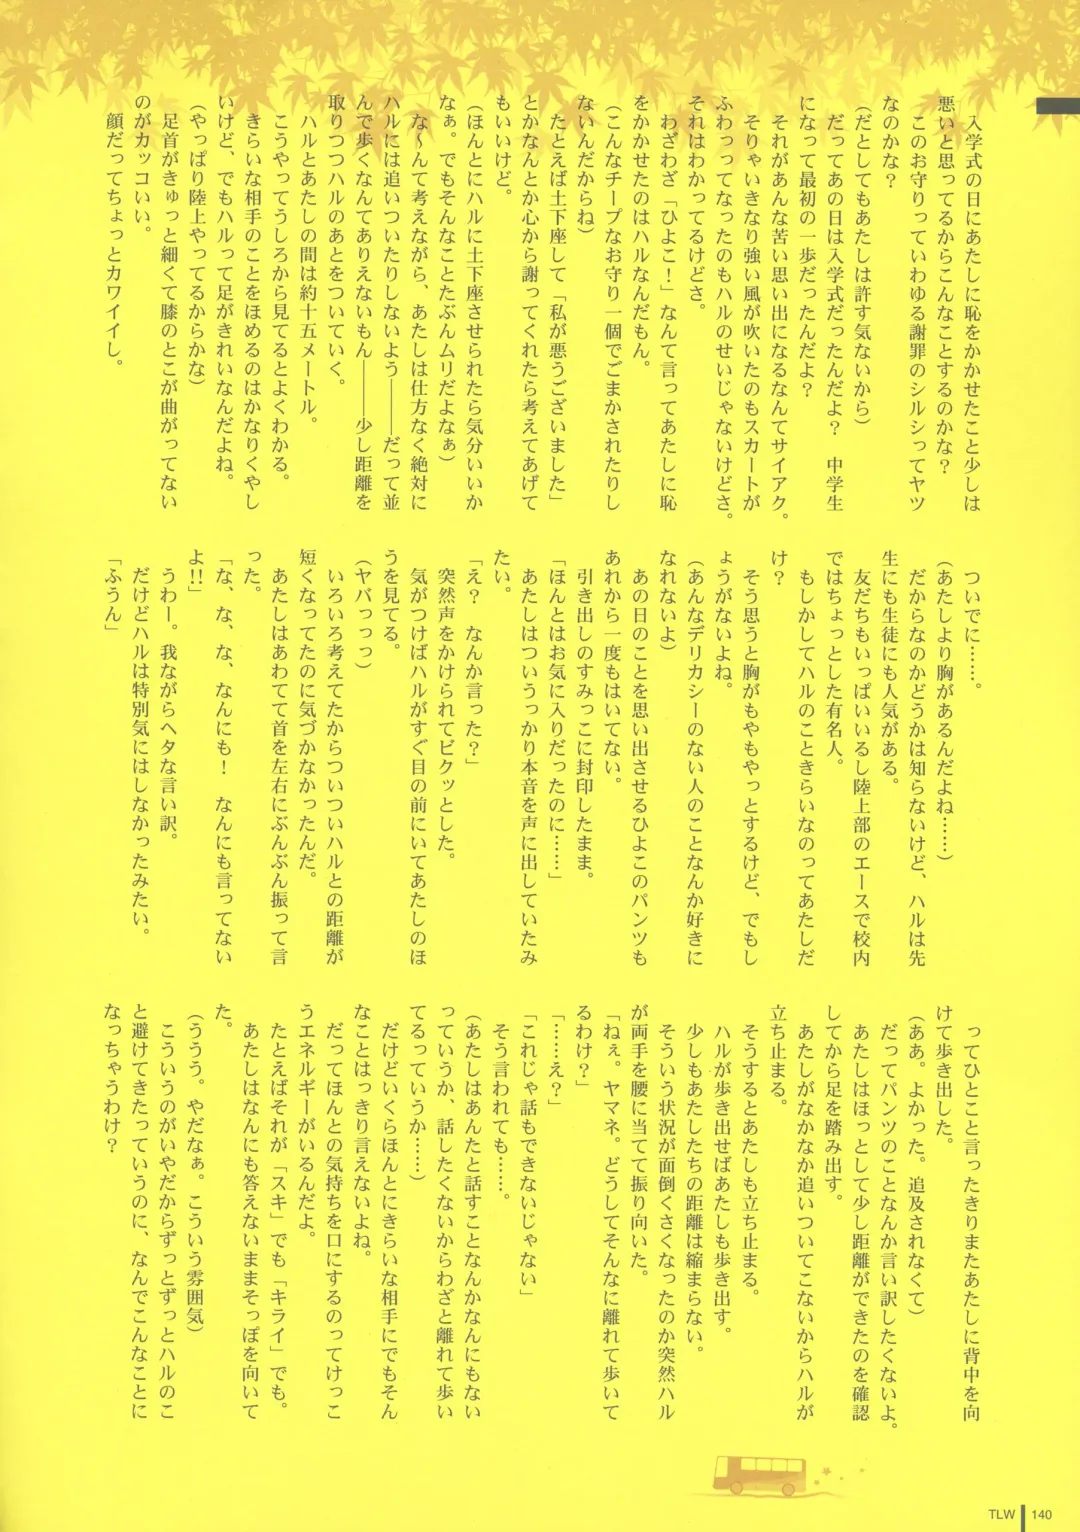 入学式の日にあたしに恥をかかせたこと少しは
悪いと思ってるからこんなことするのかな？
　このお守りっていわゆる謝罪のシルシってヤツ
なのかな？
（だとしてもあたしは許す気ないから）
　だってあの日は入学式だったんだよ？　中学生
になって最初の一歩だったんだよ？
　それがあんな苦い思い出になるなんてサイアク。
　そりゃいきなり強い風が吹いたのもスカートが
ふわっってなったのもハルのせいじゃないけどさ。
それはわかってるけどさ。
　わざわざ「ひよこ！」なんて言ってあたしに恥
をかかせたのはハルなんだもん。
（こんなチープなお守り一個でごまかされたりし
ないんだからね）
　たとえば土下座して「私が悪うございました」
とかなんとか心から謝ってくれたら考えてあげて
もいいけど。
（ほんとにハルに土下座させられたら気分いいか
なぁ。でもそんなことたぶんムリだよなぁ）
　な〜んて考えながら、あたしは仕方なく絶対に
ハルには追いついたりしないよう――だって並
んで歩くなんてありえないもん――少し距離を
取りつつハルのあとをついていく。
　ハルとあたしの間は約十五メートル。
　こうやってうしろから見てるとよくわかる。
　きらいな相手のことをほめるのはかなりくやし
いけど、でもハルって足がきれいなんだよね。
（やっぱり陸上やってるからかな）
　足首がきゅっと細くて膝のとこが曲がってない
のがカッコいい。
　顔だってちょっとカワイイし。
　ついでに……。
（あたしより胸があるんだよね……）
　だからなのかどうかは知らないけど、ハルは先
生にも生徒にも人気がある。
　友だちもいっぱいいるし陸上部のエースで校内
ではちょっとした有名人。
　もしかしてハルのこときらいなのってあたしだ
け？
　そう思うと胸がもやもやっとするけど、でもし
ょうがないよね。
（あんなデリカシーのない人のことなんか好きに
なれないよ）
　あの日のことを思い出させるひよこのパンツも
あれから一度もはいてない。
　引き出しのすみっこに封印したまま。
「ほんとはお気に入りだったのに……」
　あたしはついうっかり本音を声に出していたみ
たい。
「え？　なんか言った？」
　突然声をかけられてビクッとした。
　気がつけばハルがすぐ目の前にいてあたしのほ
うを見てる。
（ヤバっっっ）
　いろいろ考えてたからついついハルとの距離が
短くなってたのに気づかなかったんだ。
　あたしはあわてて首を左右にぶんぶん振って言
った。
「な、な、な、なんにも！　なんにも言ってない
よ!!」
　うわー。我ながらヘタな言い訳。
　だけどハルは特別気にはしなかったみたい。
「ふうん」
　ってひとこと言ったきりまたあたしに背中を向
けて歩き出した。
（ああ。よかった。追及されなくて）
　だってパンツのことなんか言い訳したくないよ。
　あたしはほっとして少し距離ができたのを確認
してから足を踏み出す。
　あたしがなかなか追いついてこないからハルが
立ち止まる。
　そうするとあたしも立ち止まる。
　ハルが歩き出せばあたしも歩き出す。
　少しもあたしたちの距離は縮まらない。
　そういう状況が面倒くさくなったのか突然ハル
が両手を腰に当てて振り向いた。
「ねぇ。ヤマネ。どうしてそんなに離れて歩いて
るわけ？」
「……え？」
「これじゃ話もできないじゃない」
　そう言われても……。
（あたしはあんたと話すことなんかなんにもない
っていうか、話したくないからわざと離れて歩い
てるっていうか……）
　だけどいくらほんとにきらいな相手にでもそん
なことはっきり言えないよね。
　だってほんとの気持ちを口にするのってけっこ
うエネルギーがいるんだよ。
　たとえばそれが「スキ」でも「キライ」でも。
　あたしはなんにも答えないままそっぽを向いて
た。
（ううう。やだなぁ。こういう雰囲気）
　こういうのがいやだからずっとずっとハルのこ
と避けてきたっていうのに、なんでこんなことに
なっちゃうわけ？
TLW 140